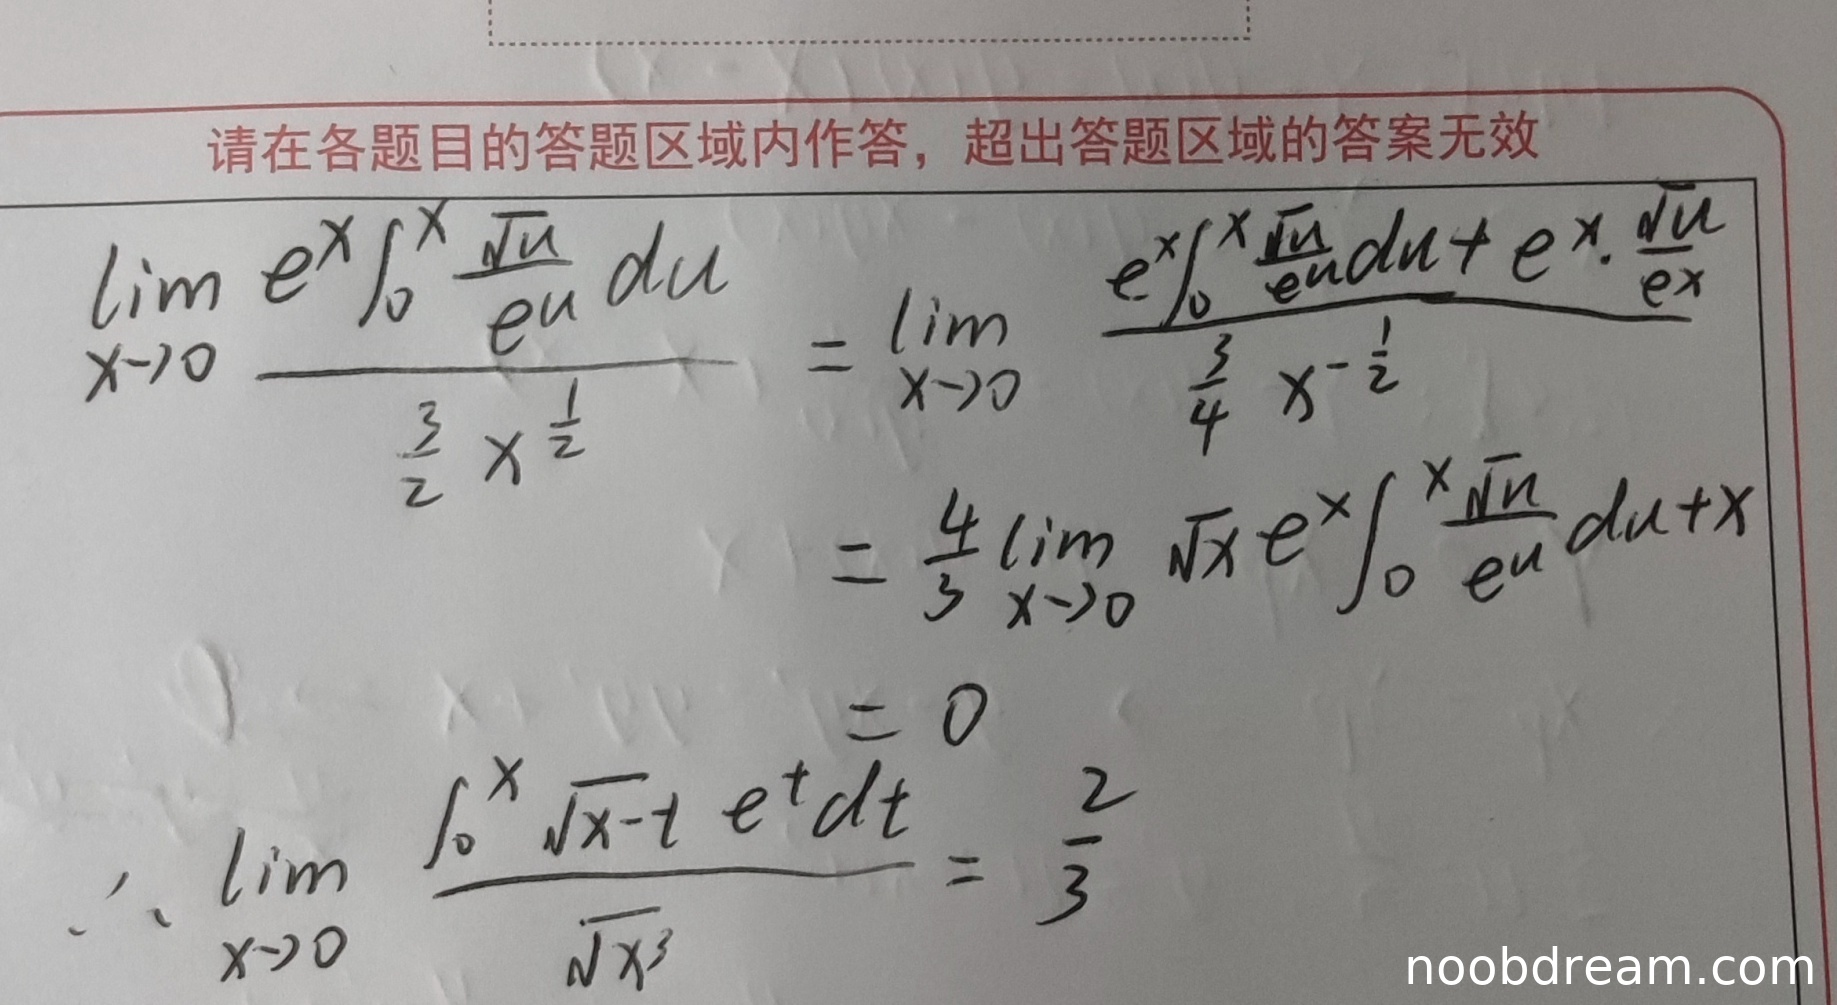 请在各题目的答题区域内作答，超出答题区域的答案无效
lim x→0 (e^x ∫_0^x √u/e^u du) / (3/2 x^(1/2)) = lim x→0 (e^x ∫_0^x √u/e^u du + e^x · √u/e^x) / (3/4 x^(-1/2))
= 4/3 lim x→0 √x e^x ∫_0^x √u/e^u du + x
= 0
∴ lim x→0 (∫_0^x √(x-t) e^t dt) / √(x^3) = 2/3
noobdream.com